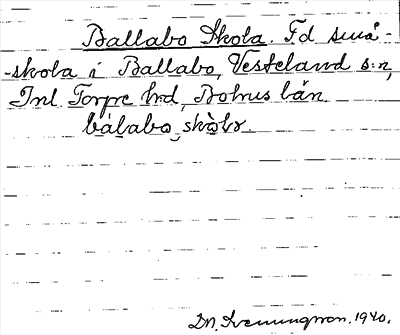 Ballabo Skola. Fd små-
-skola i Ballabo, Vesteland s:n,
Inl. Torpe hrd, Bohus län.
bálabo skòlr.
D.N. Svenningsson. 1940.